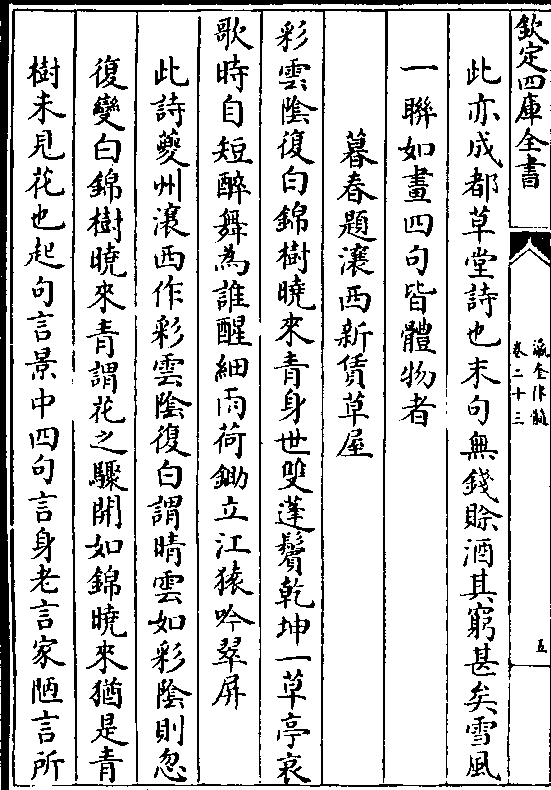 欽定四庫全書
瀛奎律髓
卷二十三
五
此亦成都草堂詩也末句無錢賒酒其窮甚矣雪風
一聯如畫四句皆體物者
暮春題瀼西新賃草屋
彩雲陰復白錦樹曉來青身世雙蓬鬢乾坤一草亭哀
歌時自短醉舞為誰醒細雨荷鋤立江猿吟翠屏
此詩夔州瀼西作彩雲陰復白謂晴雲如彩陰則忽
復變白錦樹曉來青謂花之驟開如錦曉來猶是青
樹未見花也起句言景中四句言身老言家陋言所